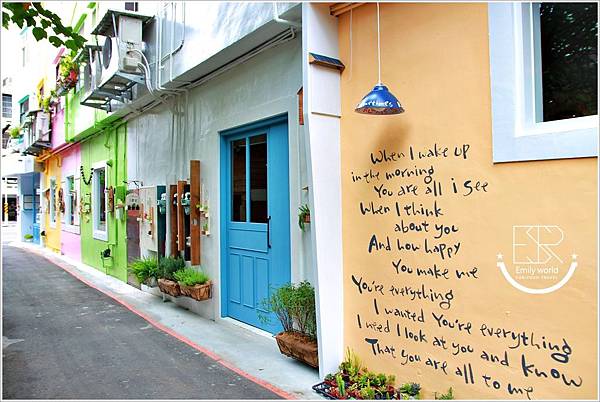 Sometimes
When I wake up
in the morning
You are all i see
When I think
about you
And how happy
You make me
You're everything
I wanted You're everything
I need I look at you and know
That you are all to me
Emily world